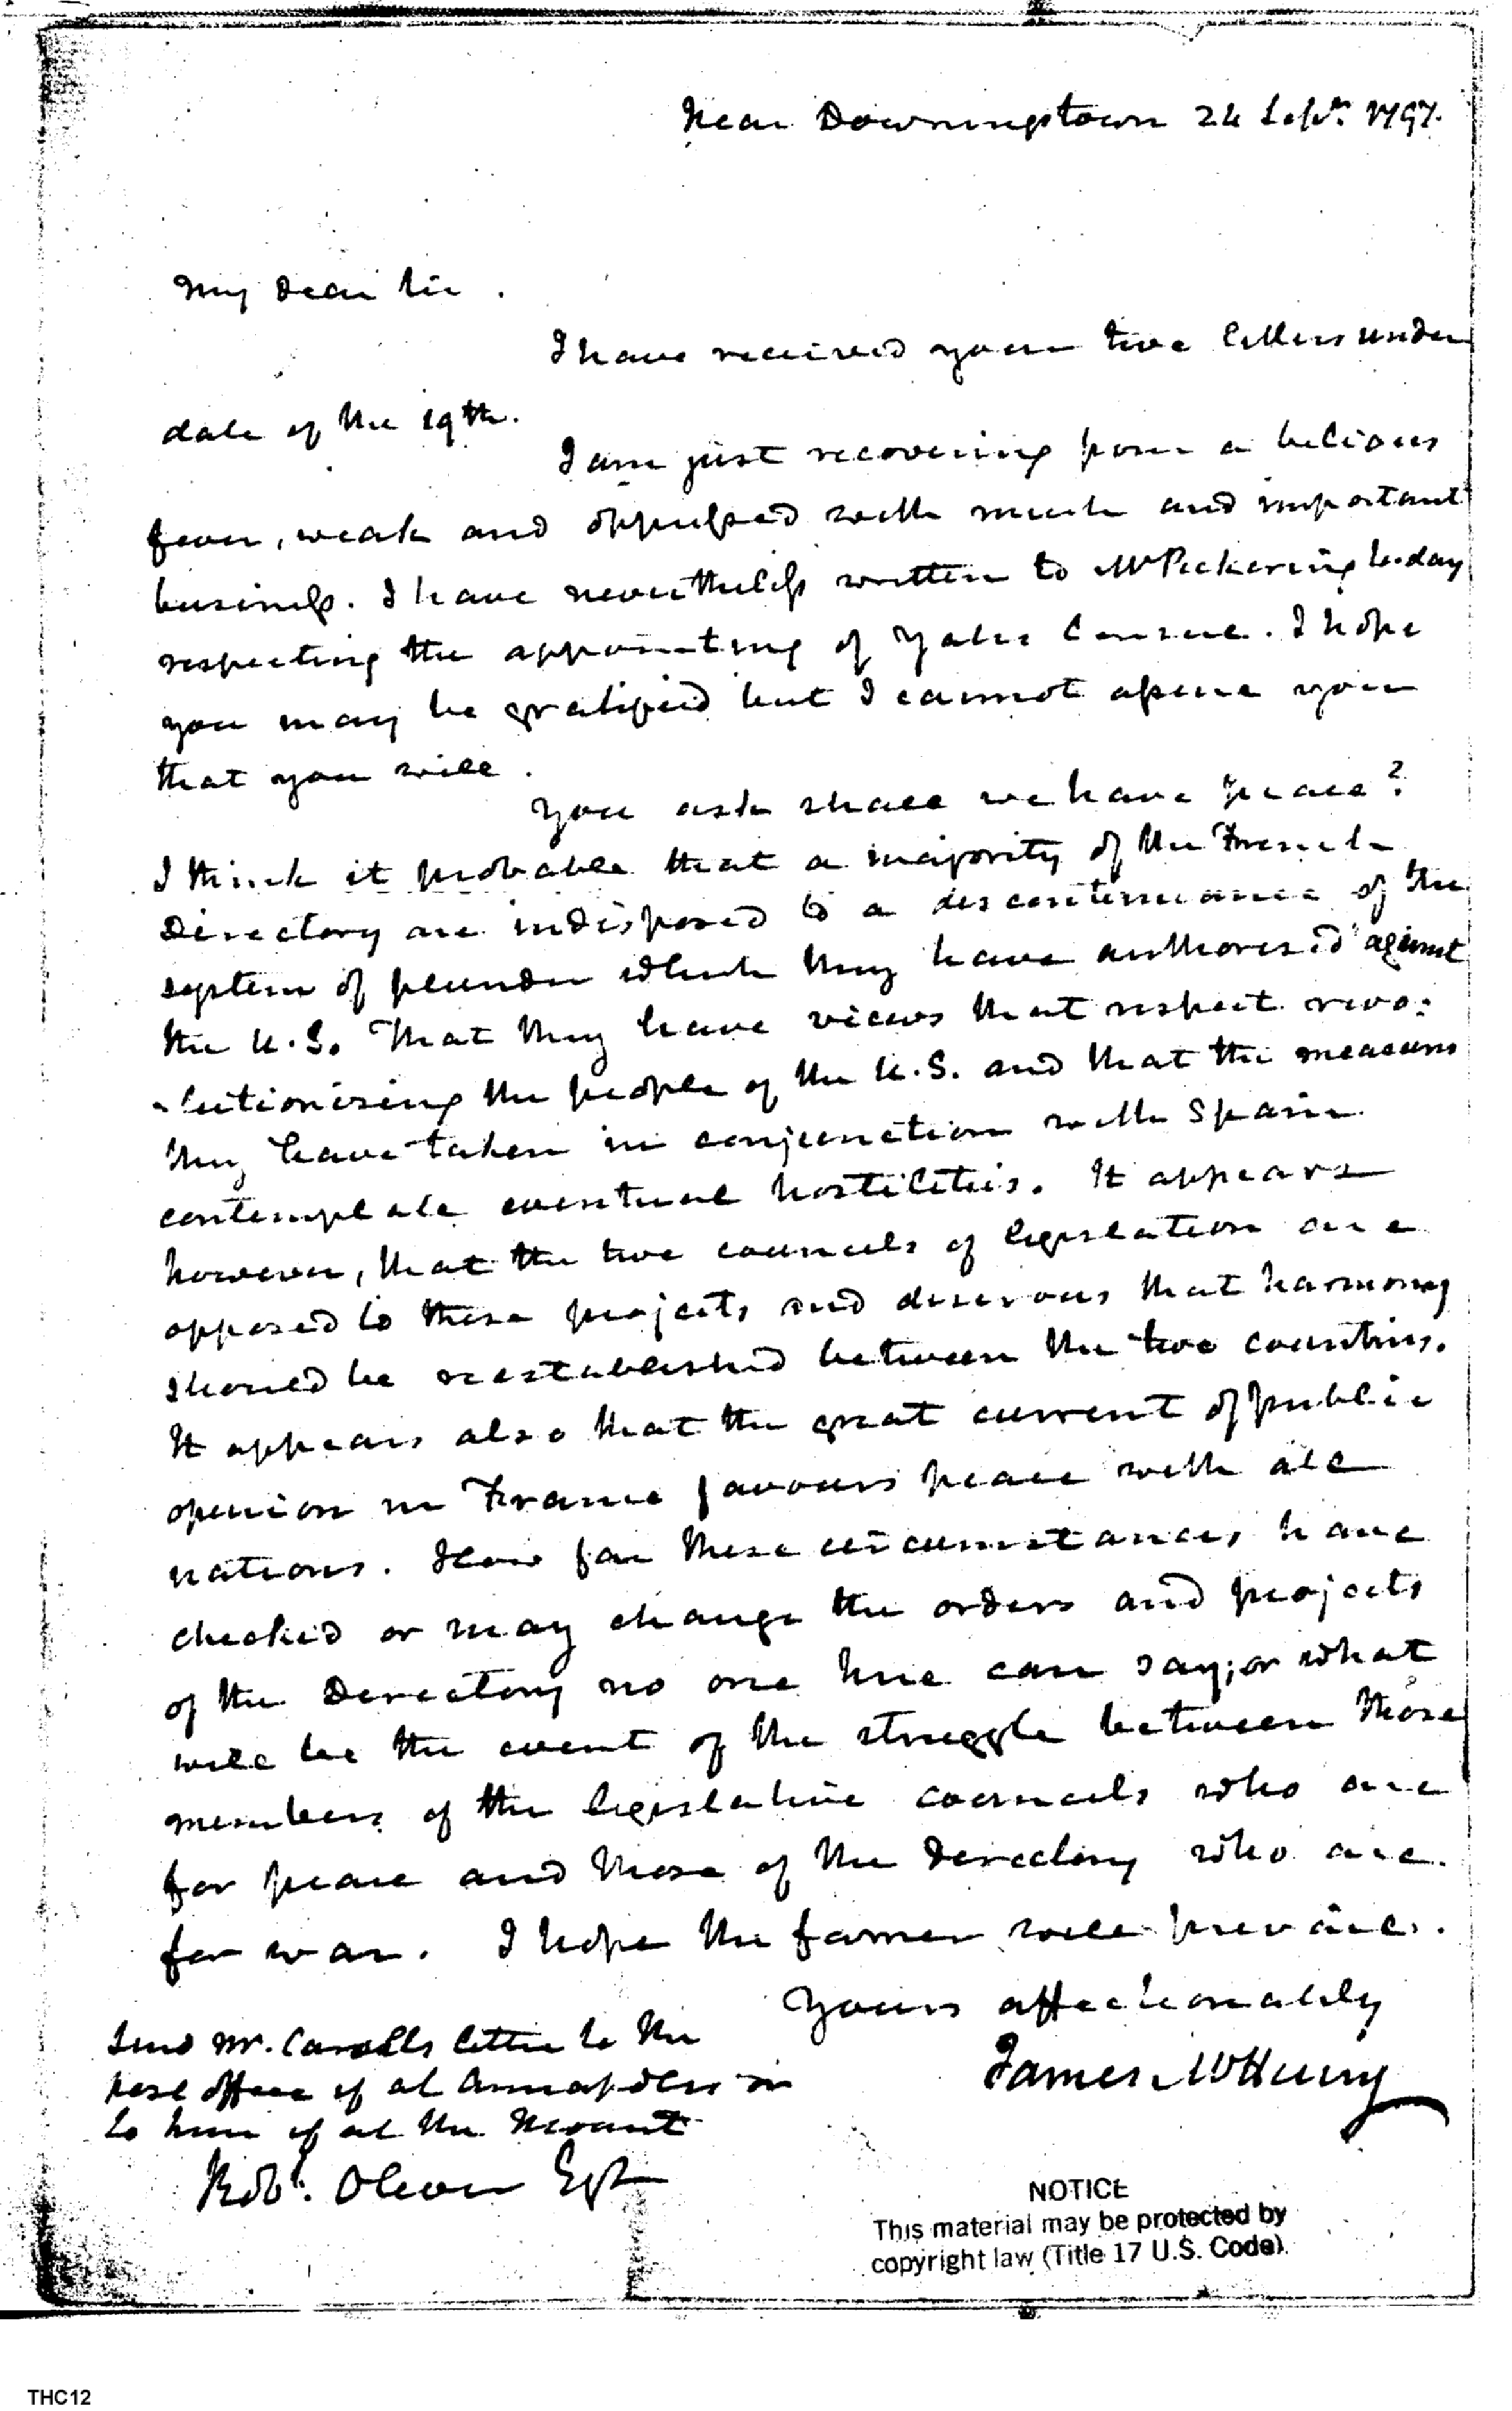 Near Downingstown 24 Sept. 1797.
My dear Sir.
I have received your two letters under
date of the 19th.
I am just recovering from a bilious
fever, weak and oppressed with much and important
business. I have nevertheless written to Mr Pickering to-day
respecting the appointing of Yates Consul. I hope
you may be gratified but I cannot assure you
that you will.
You ask shall we have peace?
I think it probable that a majority of the French
Directory are indisposed to a discontinuance of the
system of plunder which they have authorised against
the U.S. That they have views that respect revo-
-lutionising the people of the U.S. and that the measures
they have taken in conjunction with Spain
contemplate eventual hostilities. It appears
however, that the two councils of legislation are
opposed to these projects and desirous that harmony
should be reestablished between the two countries.
It appears also that the great current of public
opinion in France favours peace with all
nations. How far these circumstances have
checked or may change the orders and projects
of the Directory no one here can say; or what
will be the event of the struggle between those
members of the legislative councils who are
for peace and those of the Directory who are
for war. I hope the former will prevail.
Yours affectionately
James McHenry
Send Mr. Carrolls letter to the
post office if at Annapolis or
to him if at the Mount
Robt. Oliver Esqr
NOTICE
This material may be protected by
copyright law (Title 17 U.S. Code).
THC12